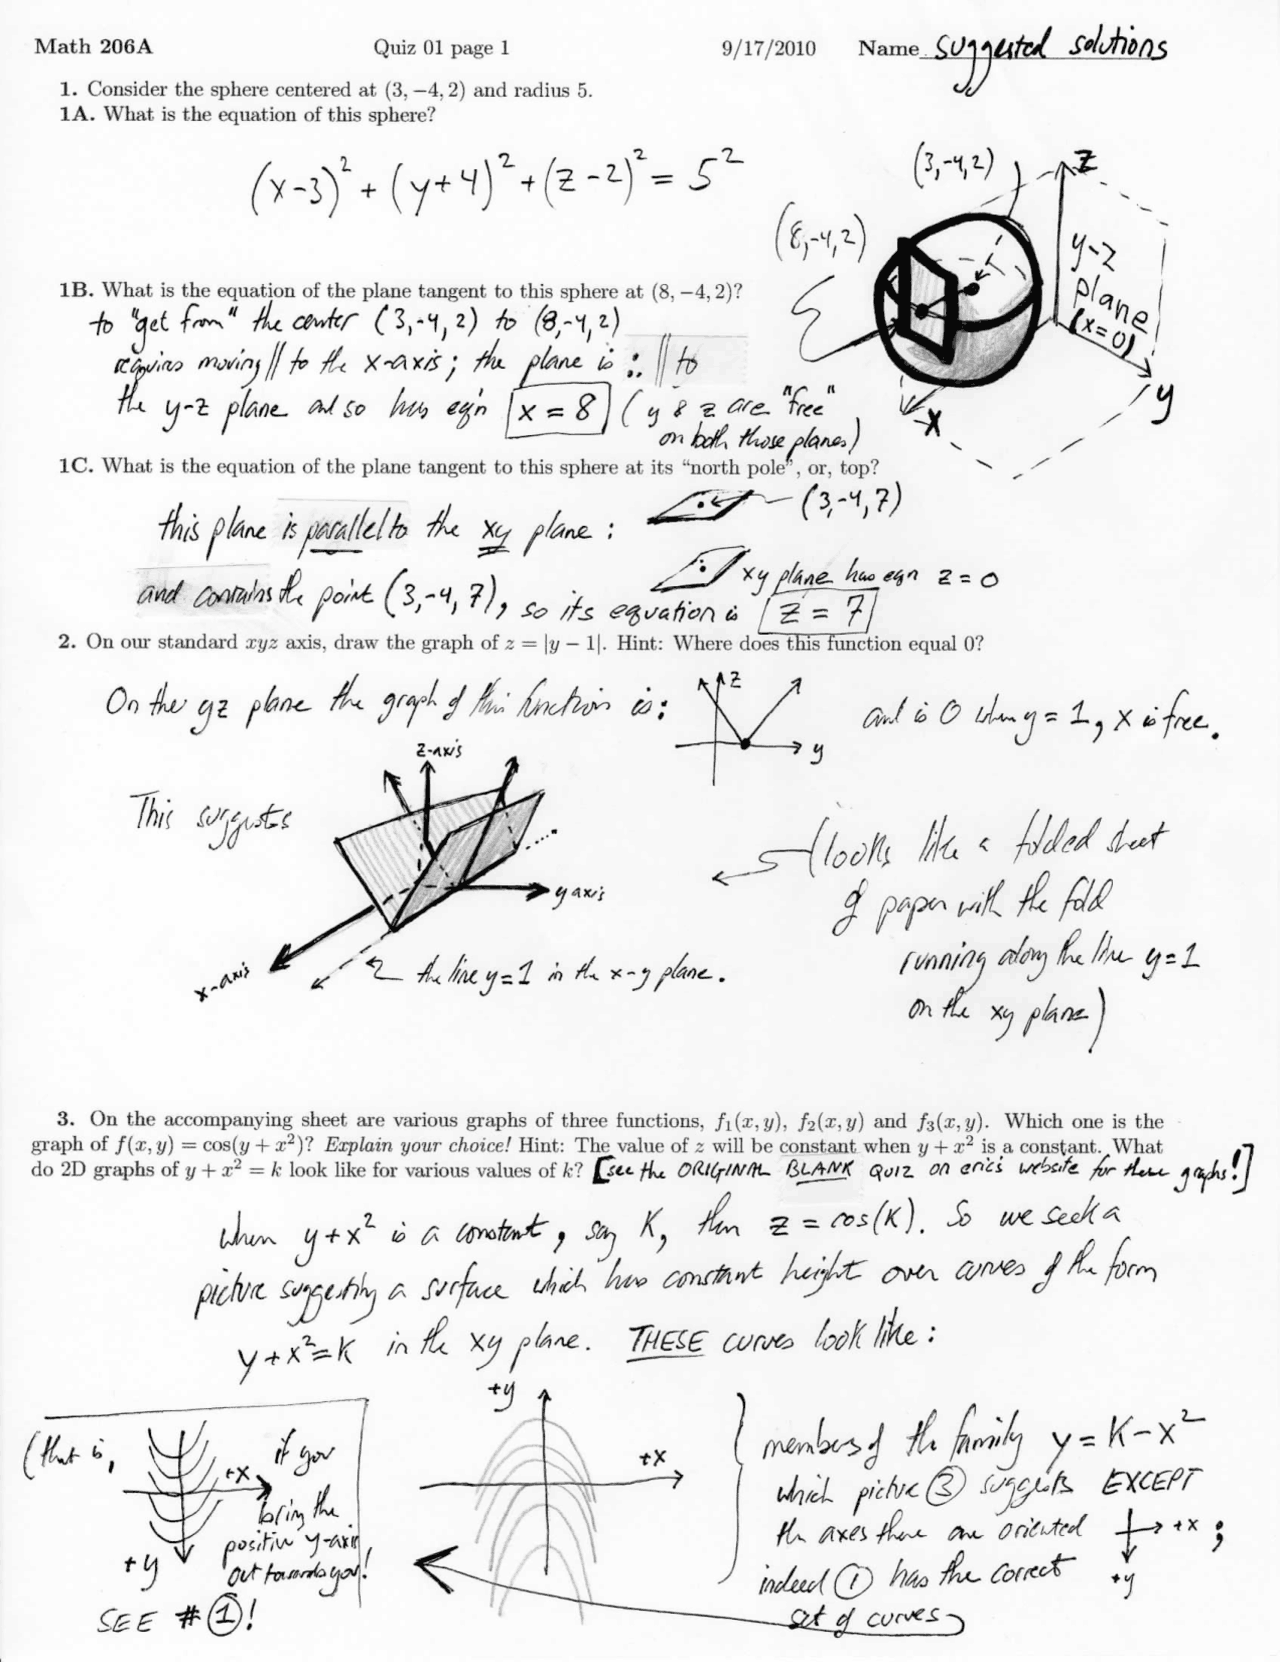 Math 206A Quiz 01 page 1 9/17/2010 Name suggested solutions
1. Consider the sphere centered at (3, −4, 2) and radius 5.
1A. What is the equation of this sphere?
(x-3)² + (y+4)² + (z-2)² = 5²
(3,-4,2)
z
(8,-4,2)
y-z
plane
(x=0)
y
x
1B. What is the equation of the plane tangent to this sphere at (8, −4, 2)?
to "get from" the center (3,-4,2) to (8,-4,2)
requires moving // to the x-axis; the plane is ∴ // to
the y-z plane and so has eq'n x = 8 (y & z are "free"
on both those planes)
1C. What is the equation of the plane tangent to this sphere at its “north pole”, or, top?
(3,-4,7)
this plane is parallel to the xy plane :
xy plane has eqn z = 0
and contains the point (3,-4,7), so its equation is z = 7
2. On our standard xyz axis, draw the graph of z = |y − 1|. Hint: Where does this function equal 0?
On the yz plane the graph of this function is: z y and is 0 when y = 1, x is free.
z-axis
This suggests
y axis
x-axis
the line y=1 in the x-y plane.
(looks like a folded sheet
of paper with the fold
running along the line y=1
on the xy plane)
3. On the accompanying sheet are various graphs of three functions, f₁(x, y), f₂(x, y) and f₃(x, y). Which one is the
graph of f(x, y) = cos(y + x²)? Explain your choice! Hint: The value of z will be constant when y + x² is a constant. What
do 2D graphs of y + x² = k look like for various values of k? [see the ORIGINAL BLANK QUIZ on eric's website for these graphs!]
when y+x² is a constant, say K, then z = cos(K). So we seek a
picture suggesting a surface which has constant height over curves of the form
y+x²=K in the xy plane. THESE curves look like :
(that is,
+x
+y
if you
bring the
positive y-axis
out towards you!
SEE #①!
+y
+x
members of the family y = K-x²
which picture ③ suggests EXCEPT
the axes there are oriented +x ;
+y
indeed ① has the correct
set of curves